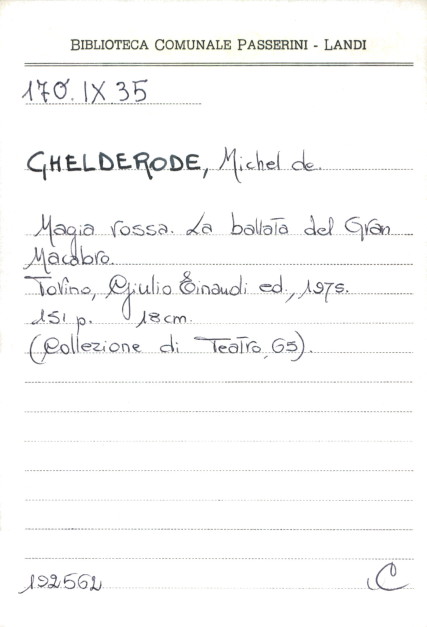 BIBLIOTECA COMUNALE PASSERINI - LANDI
170. IX 35
GHELDERODE, Michel de.
Magia rossa. La ballata del Gran
Macabro.
Torino, Giulio Einaudi ed., 1975.
151 p. 18 cm.
(Collezione di Teatro, 65).
192562 C